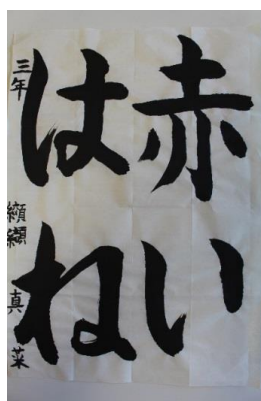 赤い
はね
三年 纐纈 真菜